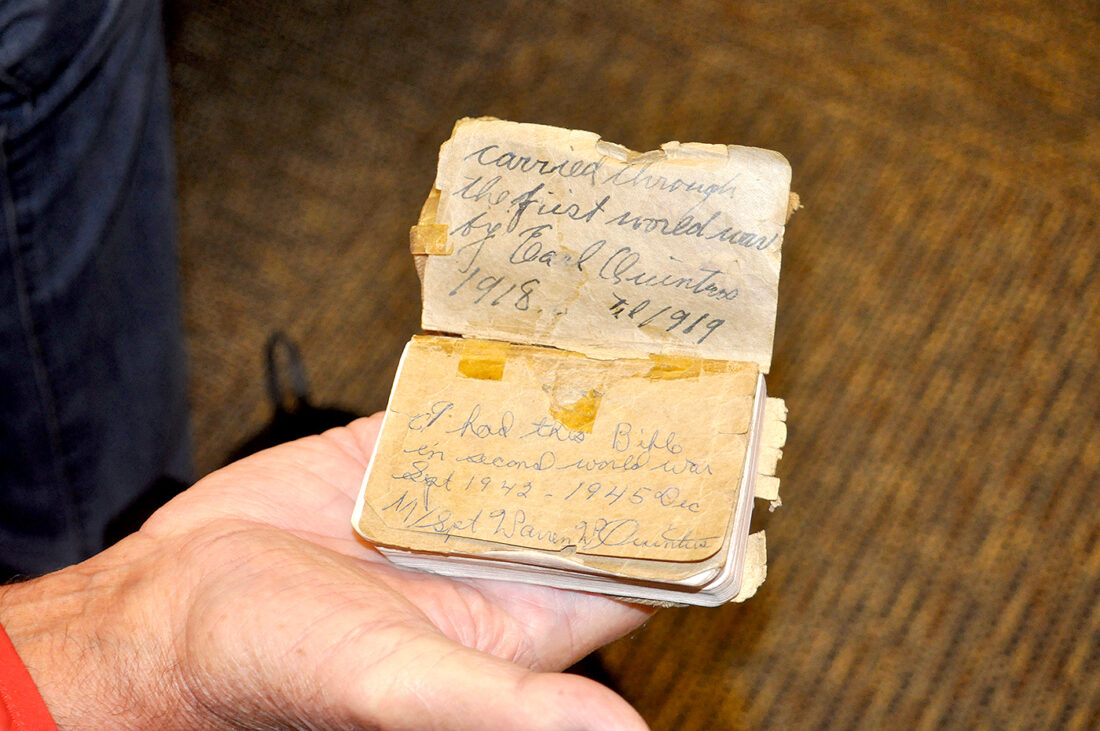 carried through
the first world war
by Earl Quintus
1918... Til 1919
I had this Bible
in second world war
Sept 1942 - 1945 Dec
M/Sgt Warren W Quintus